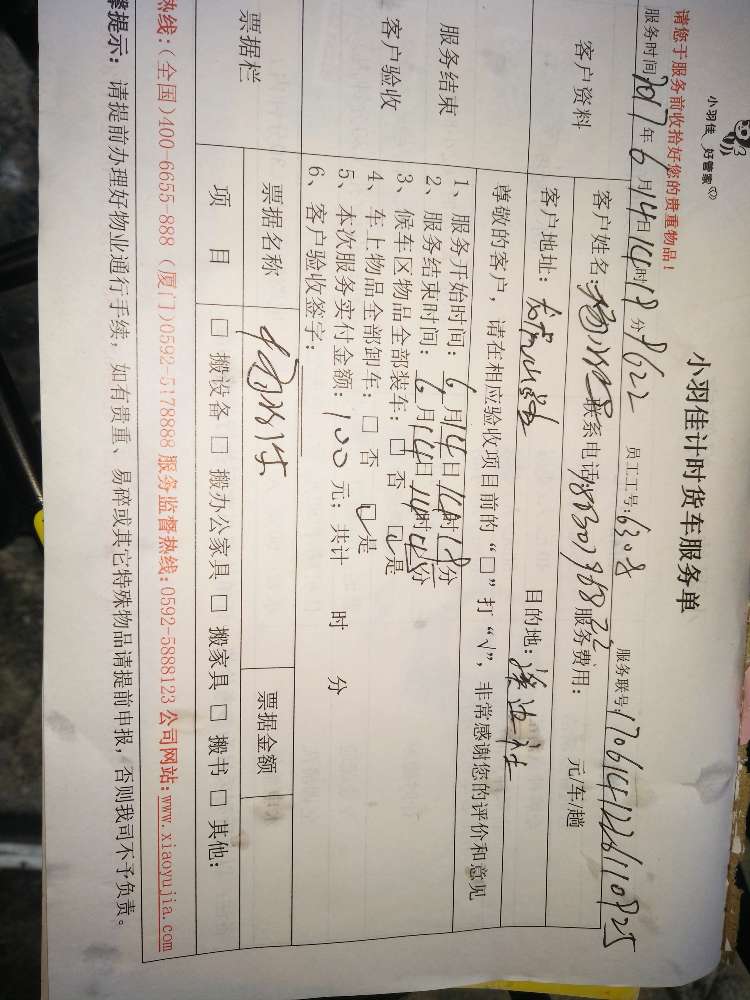 小羽佳 好管家
小羽佳计时货车服务单
请您于服务前收拾好您的贵重物品!
服务时间2017年6月14日14时18分 8622 员工工号:6308 服务联号:1706141226110825
客户资料
客户姓名: 联系电话: 服务费用: 元/车/趟
客户地址: 目的地:
尊敬的客户,请在相应验收项目前的“□”打“√”,非常感谢您的评价和意见
服务结束
客户验收
1、服务开始时间:6月14日14时18分
2、服务结束时间:6月14日14时45分
3、候车区物品全部装车:□否 ☑是
4、车上物品全部卸车:□否 ☑是
5、本次服务实付金额:100元;共计 时 分
6、客户验收签字:
票据栏
票据名称 票据金额
项 目 □搬设备 □搬办公家具 □搬家具 □搬书 □其他:
热线:(全国)400-6655-888 (厦门)0592-5178888 服务监督热线:0592-5888123 公司网站:www.xiaoyujia.com
馨提示:请提前办理好物业通行手续,如有贵重、易碎或其它特殊物品请提前申报,否则我司不予负责。